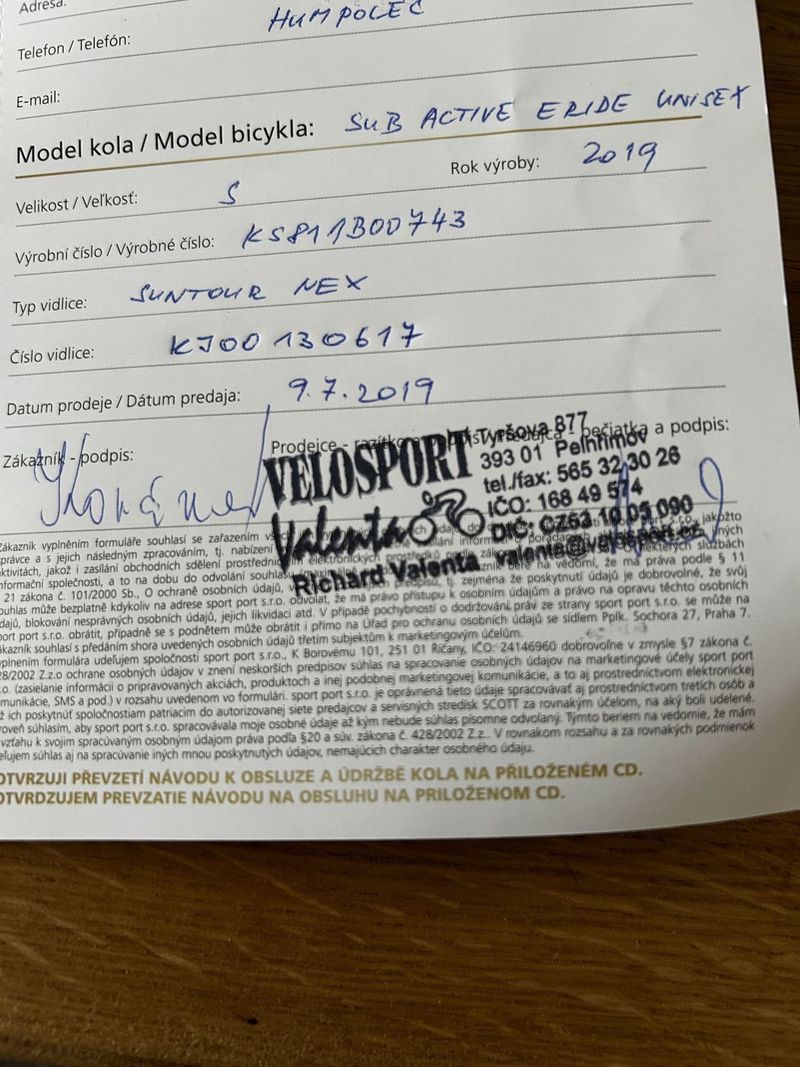 Adresa:
HUMPOLEC
Telefon / Telefón:
E-mail:
Model kola / Model bicykla: SUB ACTIVE ERIDE UNISEX
Velikost / Veľkosť: S Rok výroby: 2019
Výrobní číslo / Výrobné číslo: KS811B00743
Typ vidlice: SUNTOUR NEX
Číslo vidlice: KJ00130617
Datum prodeje / Dátum predaja: 9.7.2019
Zákazník - podpis: Prodejce - razítko a podpis / Predajca - pečiatka a podpis:
VELOSPORT
Valenta
Richard Valenta
Tyršova 877
393 01 Pelhřimov
tel./fax: 565 32 30 26
IČO: 168 49 574
DIČ: CZ53 10 05 090
valenta@velosport.cz
Zákazník vyplněním formuláře souhlasí se zařazením
správce a s jejich následným zpracováním, tj. nabízení
aktivitách, jakož i zasílání obchodních sdělení prostřednictvím elektronických prostředků
informační společnosti, a to na dobu do odvolání souhlasu bere na vědomí, že má práva podle § 11
21 zákona č. 101/2000 Sb., O ochraně osobních údajů, tj. zejména že poskytnutí údajů je dobrovolné, že svůj
souhlas může bezplatně kdykoliv na adrese sport port s.r.o. odvolat, že má právo přístupu k osobním údajům a právo na opravu těchto osobních
údajů, blokování nesprávných osobních údajů, jejich likvidaci atd. V případě pochybností o dodržování práv ze strany sport port s.r.o. se může na
sport port s.r.o. obrátit, případně se s podnětem může obrátit i přímo na Úřad pro ochranu osobních údajů se sídlem Pplk. Sochora 27, Praha 7.
Zákazník souhlasí s předáním shora uvedených osobních údajů třetím subjektům k marketingovým účelům.
Vyplnením formulára udeľujem spoločnosti sport port s.r.o., K Borovému 101, 251 01 Říčany, IČO: 24146960 dobrovoľne v zmysle §7 zákona č.
428/2002 Z.z.o ochrane osobných údajov v znení neskorších predpisov súhlas na spracovanie osobných údajov na marketingové účely sport port
s.r.o. (zasielanie informácií o pripravovaných akciách, produktoch a inej podobnej marketingovej komunikácie, a to aj prostredníctvom elektronickej
komunikácie, SMS a pod.) v rozsahu uvedenom vo formulári. sport port s.r.o. je oprávnená tieto údaje spracovávať aj prostredníctvom tretích osôb a
tiež ich poskytnúť spoločnostiam patriacim do autorizovanej siete predajcov a servisných stredísk SCOTT za rovnakým účelom, na aký boli udelené.
Zároveň súhlasím, aby sport port s.r.o. spracovávala moje osobné údaje až kým nebude súhlas písomne odvolaný. Týmto beriem na vedomie, že mám
vo vzťahu k svojim spracúvaným osobným údajom práva podľa §20 a súv. zákona č. 428/2002 Z.z.. V rovnakom rozsahu a za rovnakých podmienok
udeľujem súhlas aj na spracovanie iných mnou poskytnutých údajov, nemajúcich charakter osobného údaju.
POTVRZUJI PŘEVZETÍ NÁVODU K OBSLUZE A ÚDRŽBĚ KOLA NA PŘILOŽENÉM CD.
POTVRDZUJEM PREVZATIE NÁVODU NA OBSLUHU NA PRILOŽENOM CD.